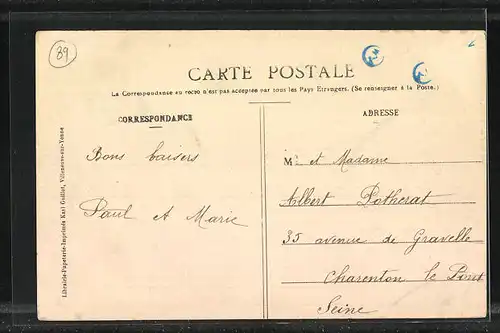 89
CARTE POSTALE
La Correspondance au recto n'est pas acceptée par tous les Pays Etrangers. (Se renseigner à la Poste.)
CORRESPONDANCE
ADRESSE
Bons baisers
Paul et Marie
Mr et Madame
Albert Potherat
35 avenue de Gravelle
Charenton le Pont
Seine
Librairie-Papeterie-Imprimés Karl Guillot, Villeneuve-sur-Yonne